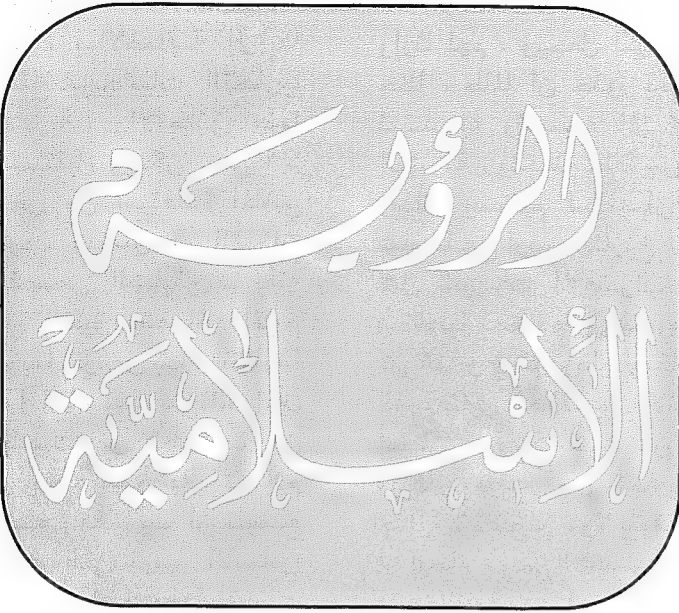 الرؤية
الإسلامية